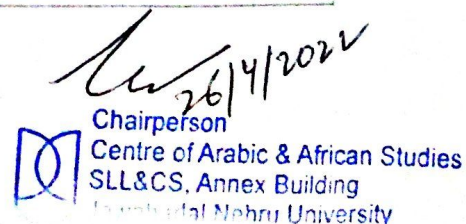 26/4/2022
Chairperson
Centre of Arabic & African Studies
SLL&CS, Annex Building
Nehru University